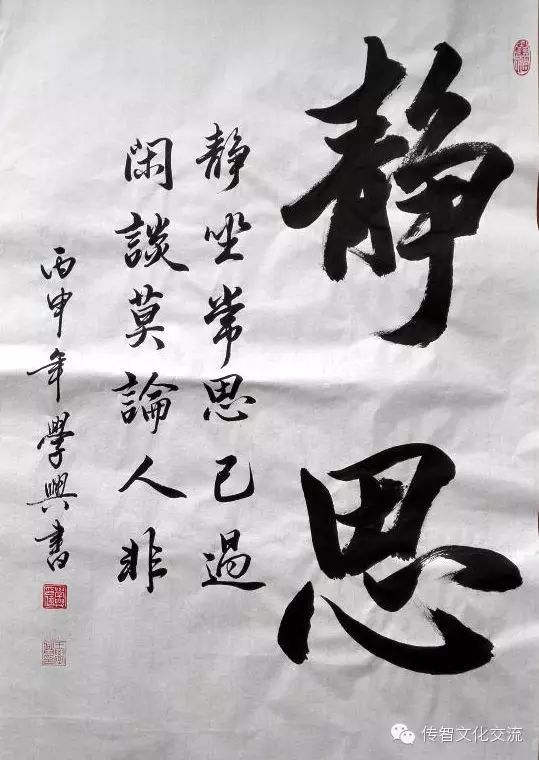 静思
静坐常思己過
閑談莫論人非
丙申年學興書
传智文化交流